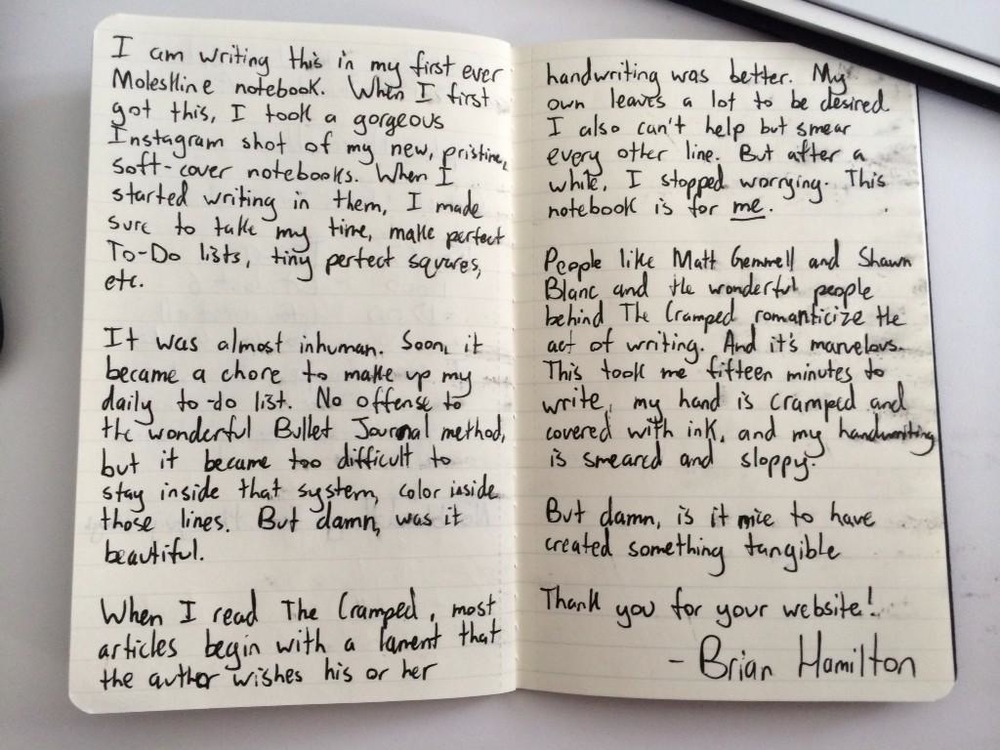 I am writing this in my first ever
Moleskine notebook. When I first
got this, I took a gorgeous
Instagram shot of my new, pristine,
soft-cover notebooks. When I
started writing in them, I made
sure to take my time, make perfect
To-Do lists, tiny perfect squares,
etc.
It was almost inhuman. Soon, it
became a chore to make up my
daily to-do list. No offense to
the wonderful Bullet Journal method,
but it became too difficult to
stay inside that system, color inside
those lines. But damn, was it
beautiful.
When I read The Cramped, most
articles begin with a lament that
the author wishes his or her
handwriting was better. My
own leaves a lot to be desired.
I also can't help but smear
every other line. But after a
while, I stopped worrying. This
notebook is for me.
People like Matt Gemmell and Shawn
Blanc and the wonderful people
behind The Cramped romanticize the
act of writing. And it's marvelous.
This took me fifteen minutes to
write, my hand is cramped and
covered with ink, and my handwriting
is smeared and sloppy.
But damn, is it nice to have
created something tangible
Thank you for your website!
- Brian Hamilton